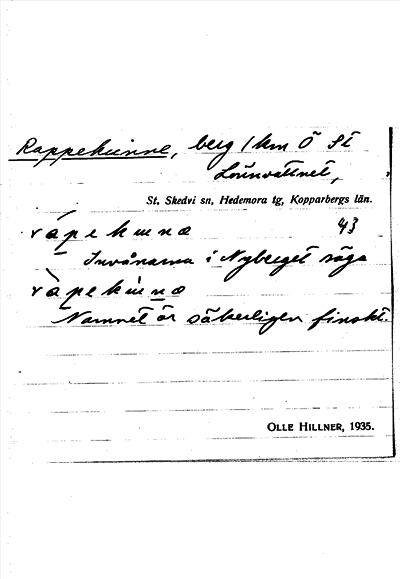 Rappekunne, berg 1 km Ö St
Lönnvattnet,
St. Skedvi sn, Hedemora tg, Kopparbergs län.
rápekunæ 43
Invånarna i Nyberget säga
ràpekùnæ
Namnet är säkerligen finskt.
OLLE HILLNER, 1935.